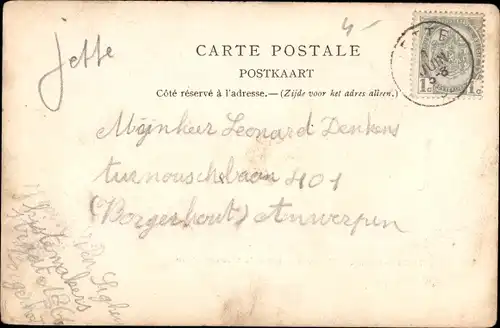 4-
Jette
CARTE POSTALE
POSTKAART
Côté réservé à l'adresse.—(Zijde voor het adres alleen.)
Mijnheer Leonard Denkens
turnoutschebaan 401
(Borgerhout) Antwerpen
JETTE
JUIN
1c 1c
Spillemakers